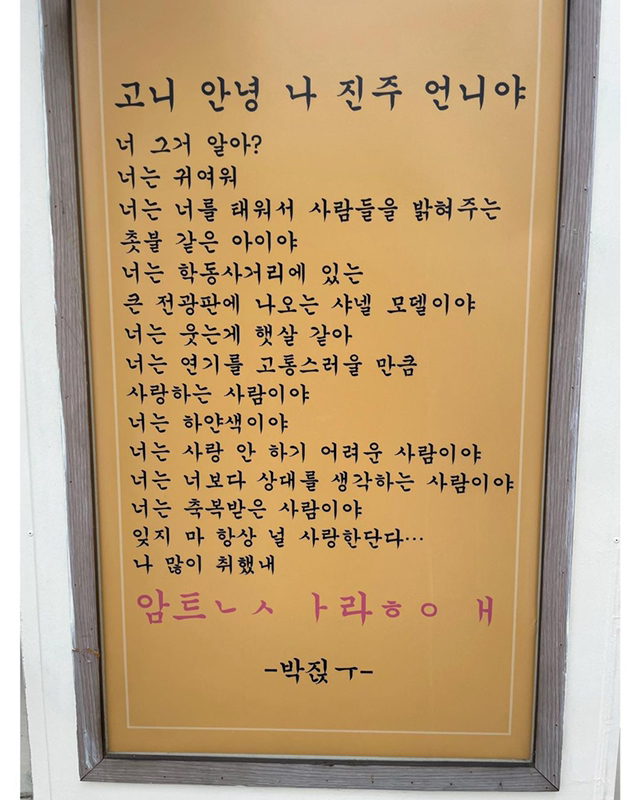 고니 안녕 나 진주 언니야
너 그거 알아?
너는 귀여워
너는 너를 태워서 사람들을 밝혀주는
촛불 같은 아이야
너는 학동사거리에 있는
큰 전광판에 나오는 샤넬 모델이야
너는 웃는게 햇살 같아
너는 연기를 고통스러울 만큼
사랑하는 사람이야
너는 하얀색이야
너는 사랑 안 하기 어려운 사람이야
너는 너보다 상대를 생각하는 사람이야
너는 축복받은 사람이야
잊지 마 항상 널 사랑한단다…
나 많이 취했내
암트ㄴㅅ ㅏ라ㅎㅇ ㅐ
-박짗ㅜ-